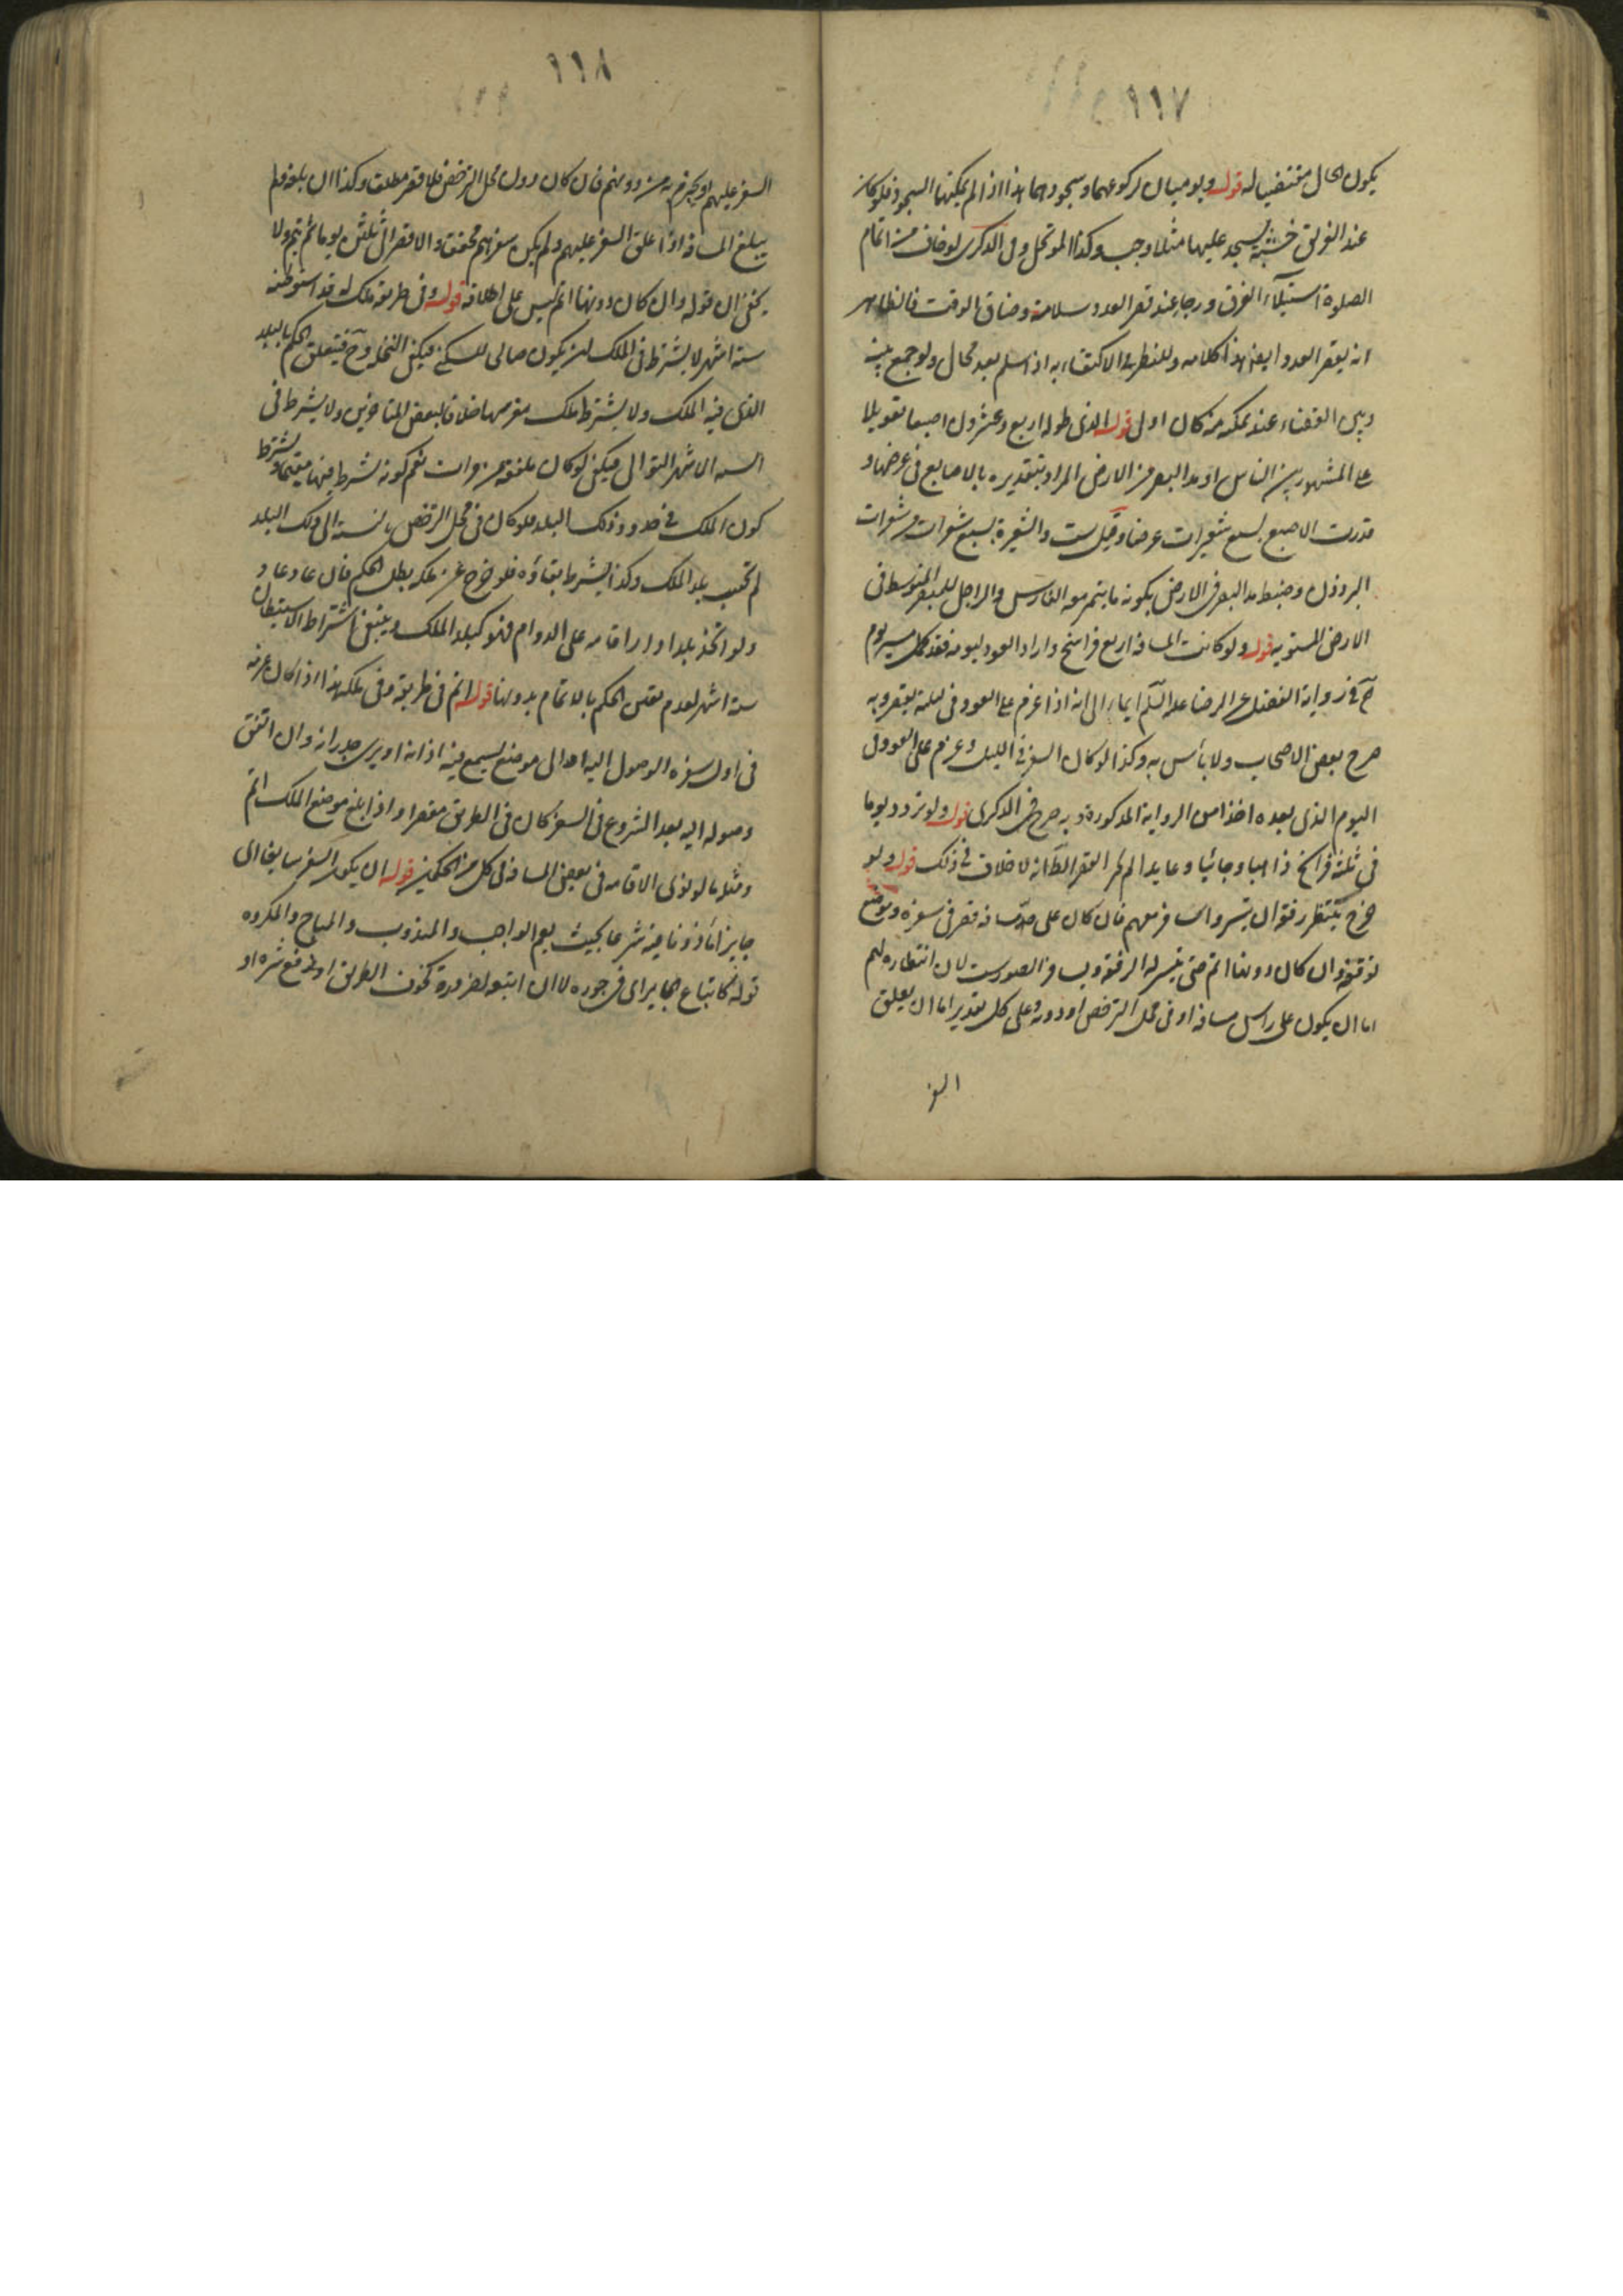 ١١٧
يكون الحال مقتضيا له قوله ويوميان لركوعهما وسجودهما هذا اذا لم يمكنهما السجود فلو كان
عند الغريق خشبة يسجد عليها مثلا وجب وكذا الموتحل وفى الذكرى لو خاف من اتمام
الصلوة استيلاء الغرق ورجا عند قصر العدد سلامته وضاق الوقت فالظاهر
انه يقصر العدد ايضا هذا كلامه وللنظر فى الاكتفاء به اذا سلم بعد مجال ولو جمع بينه
وبين القضاء عند تمكنه منه كان اولى قوله الذى طوله اربع وعشرون اصبعا تعويلا
على المشهور بين الناس او مد البصر من الارض المراد بتقديره بالاصابع فى عرضها و
قدرت الاصبع بسبع شعيرات عرضا وقيل ست والشعيرة بسبع شعرات من شعرات
البرذون وضبط مد البصر فى الارض بكونه ما يتميز معه الفارس والراجل للمبصر المتوسط فى
الارض المستوية قوله ولو كانت المسافة اربع فراسخ واراد العود ليومه فقد كمل مسير يوم
ح فى رواية الفضل عن الرضا عليه السلم ايماء الى انه اذا عزم على العود فى ليلته يقصر وبه
صرح بعض الاصحاب ولا بأس به وكذا لو كان السفر فى الليل وعزم على العود فى
اليوم الذى بعده اخذا من الرواية المذكورة وبه صرح فى الذكرى قوله ولو تردد يوما
فى ثلثة فراسخ ذاهبا وجائيا وعايدا لم يجز القصر الظ انه لا خلاف فى ذلك قوله ولو
خرج ينتظر رفقة ان تيسروا سافر معهم فان كان على حد مسافة قصر فى سفره وموضع
توقفه وان كان دونها اتم حتى يتيسر له الرفقة صور لان انتظاره لهم
اما ان يكون على راس مسافة او فى محل الترخص او دونه وعلى كل تقدير اما ان يعلق
السفر
١١٨
السفر عليهم او يجزم به من دونهم فان كان دون محل الترخص فلا قصر مطلقا وكذا ان بلغه ولم
يبلغ المسافة اذا علق السفر عليهم ولم يكن سفرهم محققا والا قصر الى ثلثين يوما ثم يتم ولا
يخفى ان قوله وان كان دونها اتم ليس على اطلاقه قوله وفى طريقه ملك له قد استوطنه
ستة اشهر لا يشترط فى الملك ان يكون صالحا للسكنى فيكفى النخل وح فيتعلق الحكم بالبلد
الذى فيه الملك ولا يشترط ملك مغرسها خلافا لبعض المتاخرين ولا يشترط فى
الستة الاشهر التوالى فيكفى لو كان ملفقة من مرات نعم كونه شرط فيها مقيما ويشترط
كون الملك فى حدود ذلك البلد فلو كان فى محل الترخص بالنسبة الى ذلك البلد
لم تحسب بلد الملك وكذا يشترط بقاؤه فلو خرج عن ملكه بطل الحكم فان عاد عاد
ولو اتخذ بلدا دار اقامه على الدوام فهو كبلد الملك وينبغى اشتراط الاستيطان
ستة اشهر لعدم تعلق الحكم بالاتمام بدونها قوله اتم فى طريقه وفى ملكه هذا اذا كان عزمه
فى اول سفره الوصول اليه او الى موضع يسمع فيه اذانه او يرى جدرانه وان اتفق
وصوله اليه بعد الشروع فى السفر كان فى الطريق مقصرا واذا بلغ موضع الملك اتم
ومثله ما لو نوى الاقامه فى بعض المسافة فى كل من الحكمين قوله ان يكون السفر سايغا اى
جايزا مأذونا فيه شرعا بحيث يعم الواجب والمندوب والمباح والمكروه
قوله كاتباع الجاير اى فى جوره لا ان اتبعه لضرورة كخوف الطريق او لدفع شره او